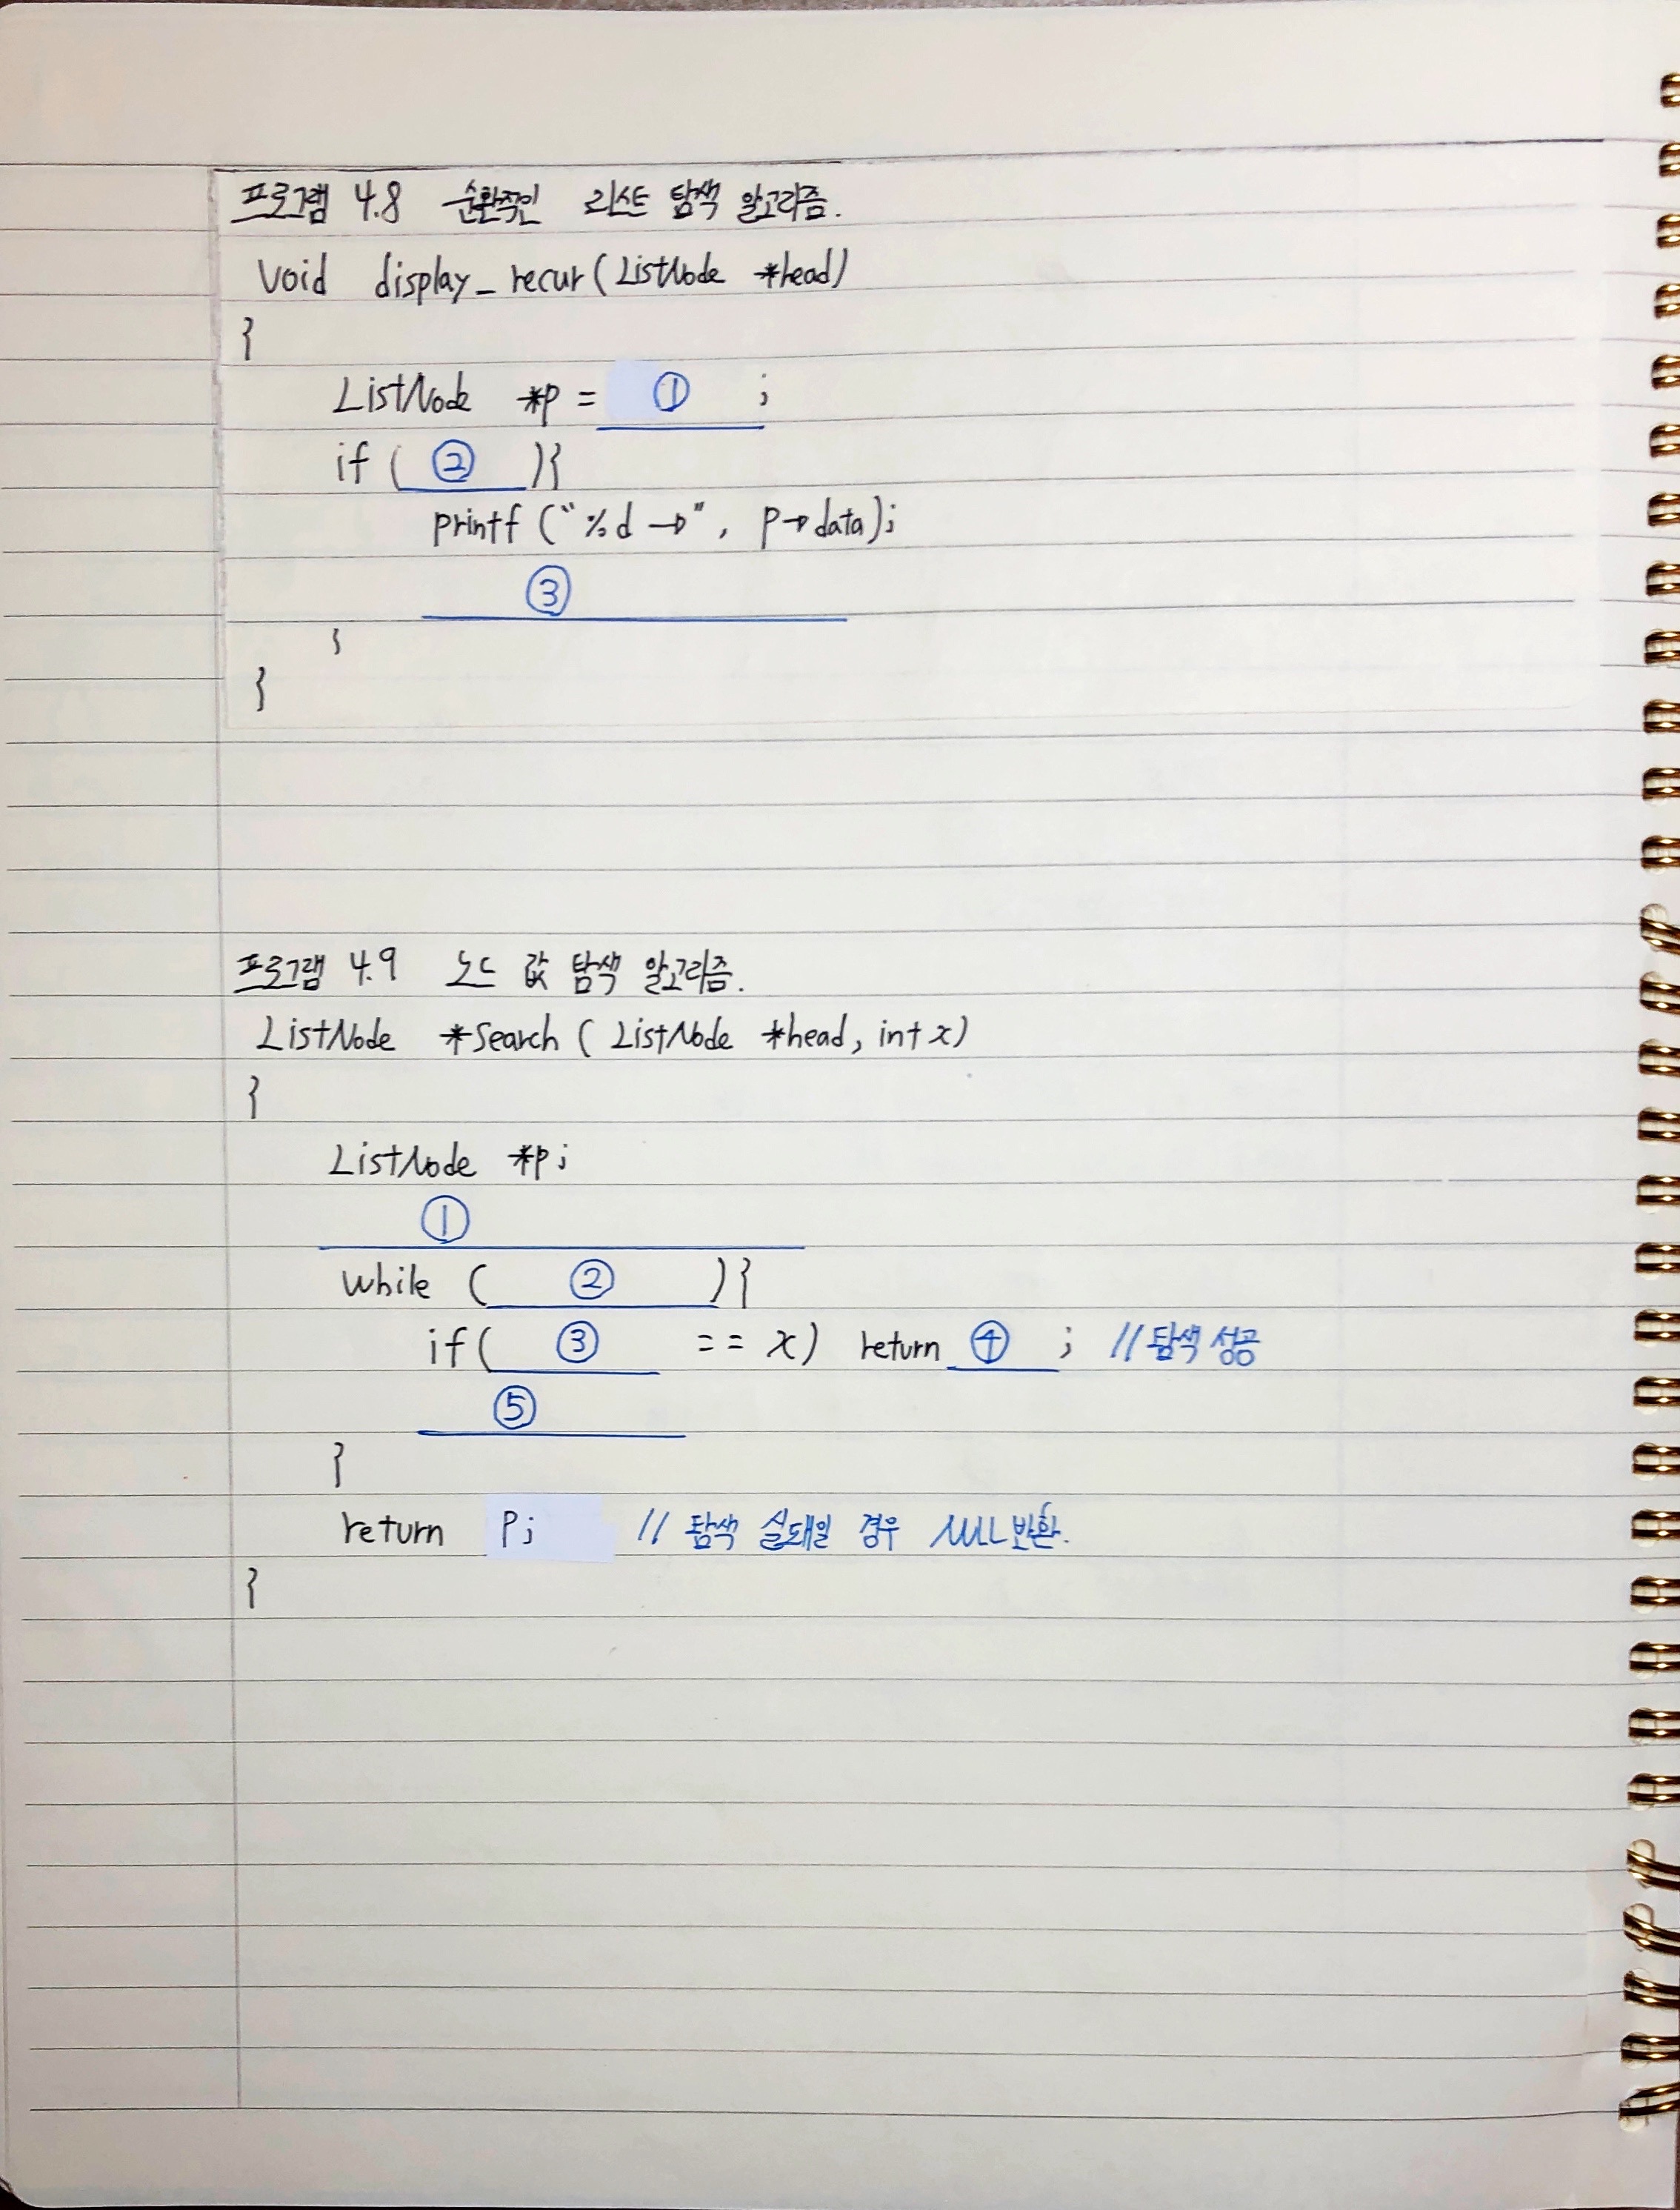 프로그램 4.8 순환적인 리스트 탐색 알고리즘.
void display_recur(ListNode *head)
{
ListNode *p = ① ;
if ( ② ){
printf ("%d →", p→data);
③
}
}
프로그램 4.9 노드 값 탐색 알고리즘.
ListNode *Search ( ListNode *head, int x)
{
ListNode *p;
①
while ( ② ){
if( ③ == x) return ④ ; //탐색 성공
⑤
}
return p; // 탐색 실패일 경우 NULL반환.
}